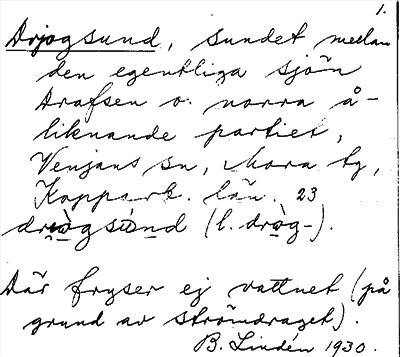 1.
Drjogsund, sundet mellan
den egentliga sjön
Drafsen o. norra å-
liknande partiet,
Venjans sn, Mora tg,
Kopparb. län. 23
(l. dròg-).
Där fryser ej vattnet (på
grund av strömdraget).
B. Lindén 1930.